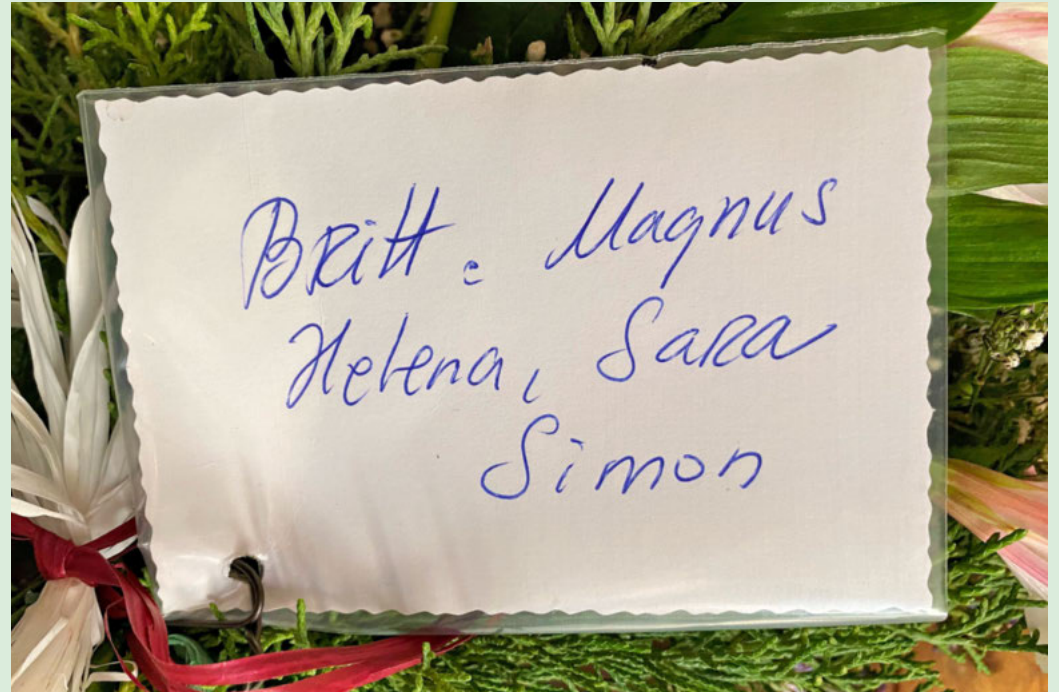 Britt. Magnus
Helena, Sara
Simon